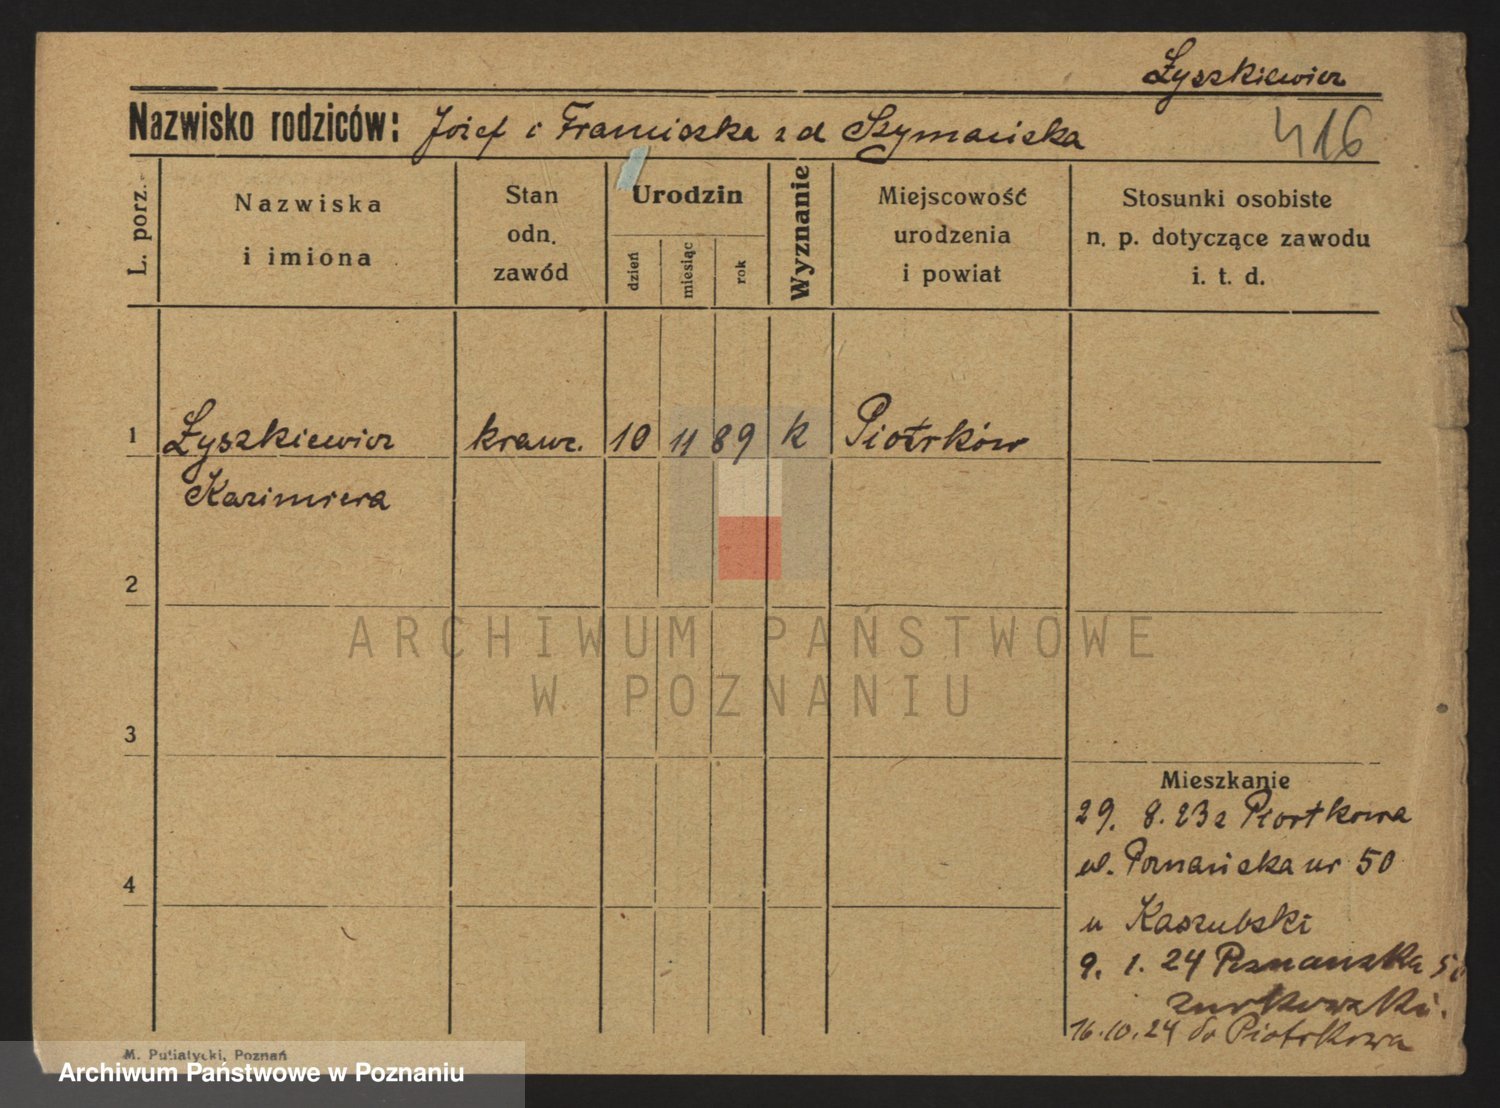 Łyszkiewicz
Nazwisko rodziców: Józef i Franciszka z d Szymańska
416
L. porz.
Nazwiska
i imiona
Stan
odn.
zawód
Urodzin
dzień
miesiąc
rok
Wyznanie
Miejscowość
urodzenia
i powiat
Stosunki osobiste
n. p. dotyczące zawodu
i. t. d.
1 Łyszkiewicz krawc. 10 11 89 k Piotrków
Kazimiera
2
ARCHIWUM PAŃSTWOWE
W POZNANIU
3
Mieszkanie
29. 8. 23 z Piortkowa
ul. Poznańska nr 50
4
u Kaszubski
9. 1. 24 Poznańska 50
Żurkowski.
16.10.24 do Piotrkowa
M. Putiatycki, Poznań
Archiwum Państwowe w Poznaniu